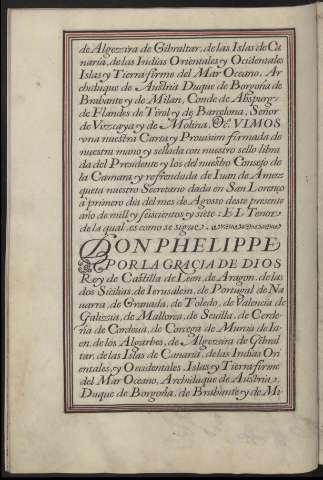 de Algezzira de Gibraltar, de las Islas de Ca
naria, de las Indias Orientales y Ocidentales
Islas y Tierra firme del Mar Oceano, Ar
chiduque de Austria Duque de Borgoña de
Brabante y de Milan, Conde de Abspurg
de Flandes de Tirol y de Barcelona, Señor
de Vizcaya y de Molina. &c. VIMOS
vna nuestra Carta y Prouision firmada de
nuestra mano y sellada con nuestro sello libra
da del Presidente y los del nuestro Consejo de
la Camara y refrendada de Iuan de Amez
queta nuestro Secretario dada en San Lorenço
a primero dia del mes de Agosto deste presente
año de mill y seiscientos y siete : EL Tenor
de la qual, es como se sigue
DON PHELIPPE
POR LA GRACIA DE DIOS
Rey de Castilla de Leon, de Aragon, de las
dos Sicilias, de Ierusalem, de Portugal de Na
uarra, de Granada, de Toledo, de Valencia de
Galizia, de Mallorca, de Seuilla, de Cerde
ña de Cordoua, de Corcega de Murcia de Ia
en, de los Algarbes, de Algezira de Gibral
tar, de las Islas de Canaria, de las Indias Ori
entales, y Ocidentales Islas y Tierra firme
del Mar Oceano, Archiduque de Austria
Duque de Borgoña, de Brabante y de Mi